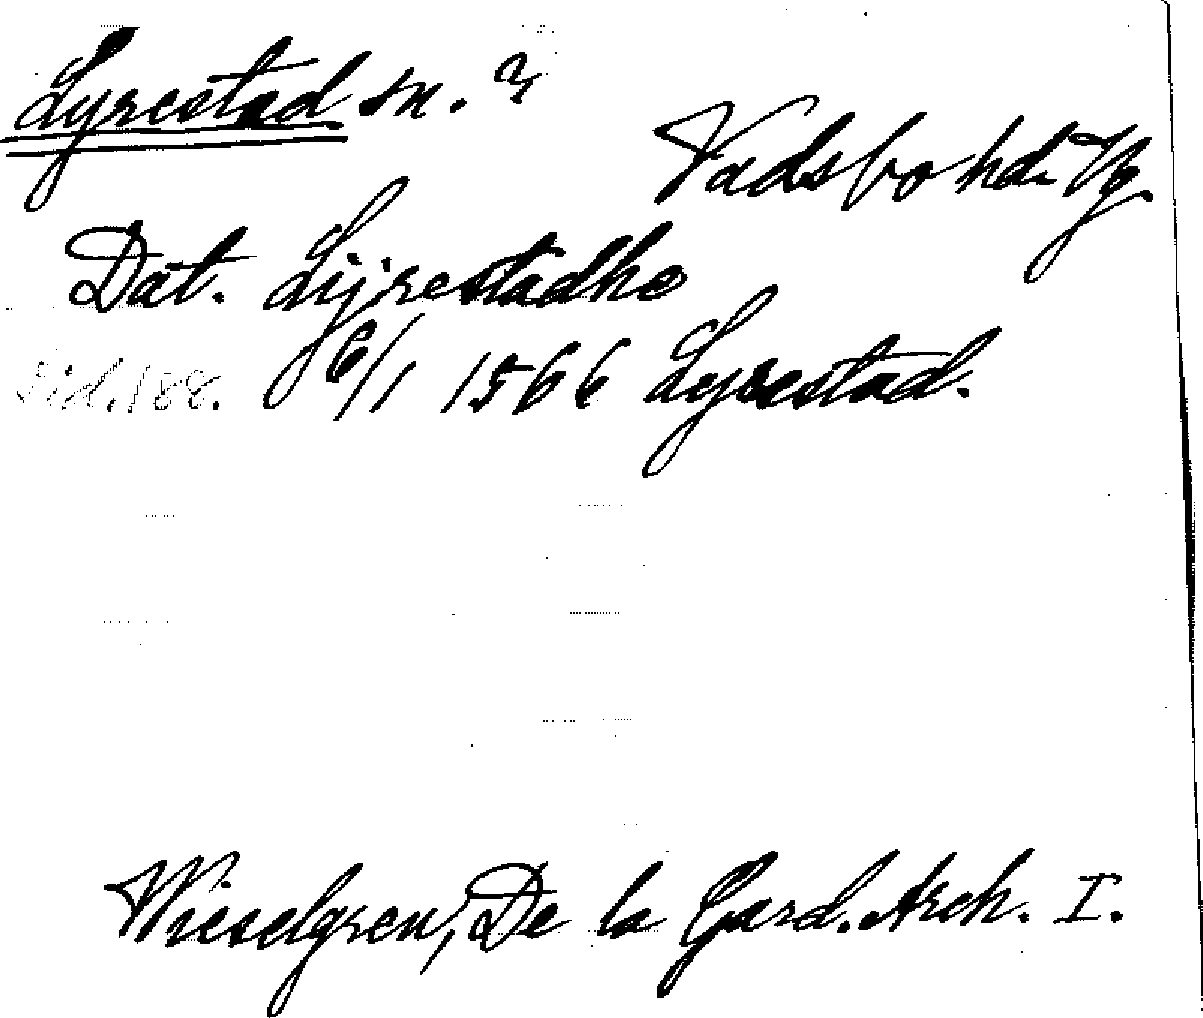 Lyrestad sn. ?
Vadsbo hd. Vg.
Dat. Lijrestadhe
6/1 1566 Lyrestad.
Sid. 188.
Wieselgren, De la Gard. Arch. I.